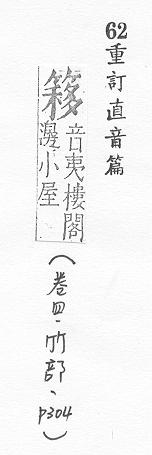 62重訂直音篇
簃
音夷樓閣
邊小屋
(卷四·竹部、p304)